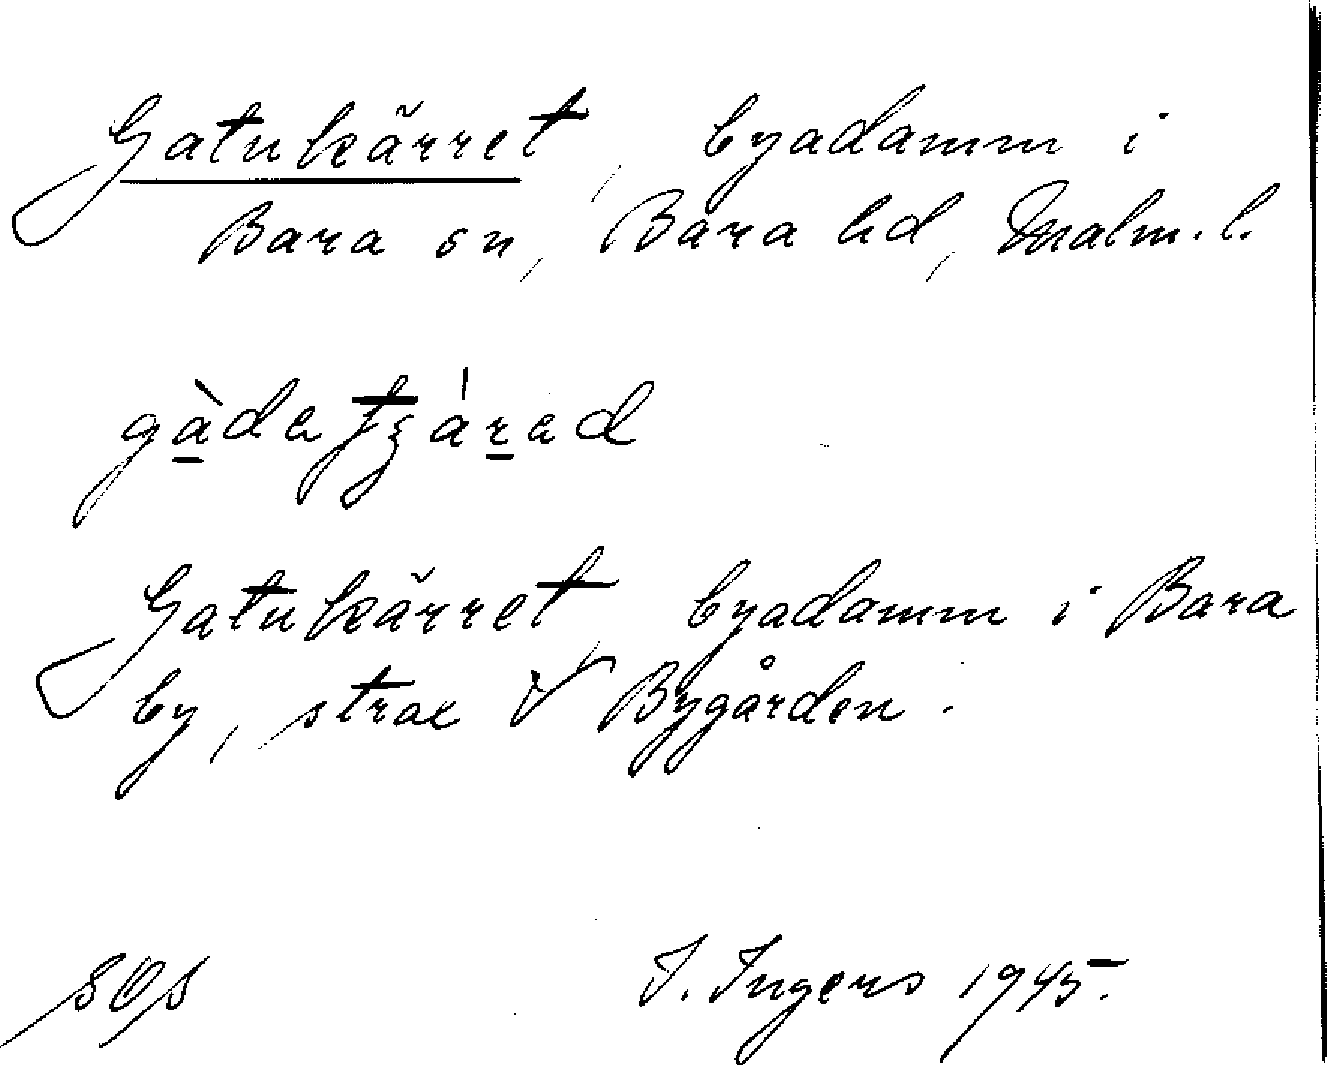 Gatukärret, byadamm i
Bara sn, Bara hd, Malm. l.
gàdatʒárad
Gatukärret, byadamm i Bara
by, strax V Bygården.
I. Ingers 1945.